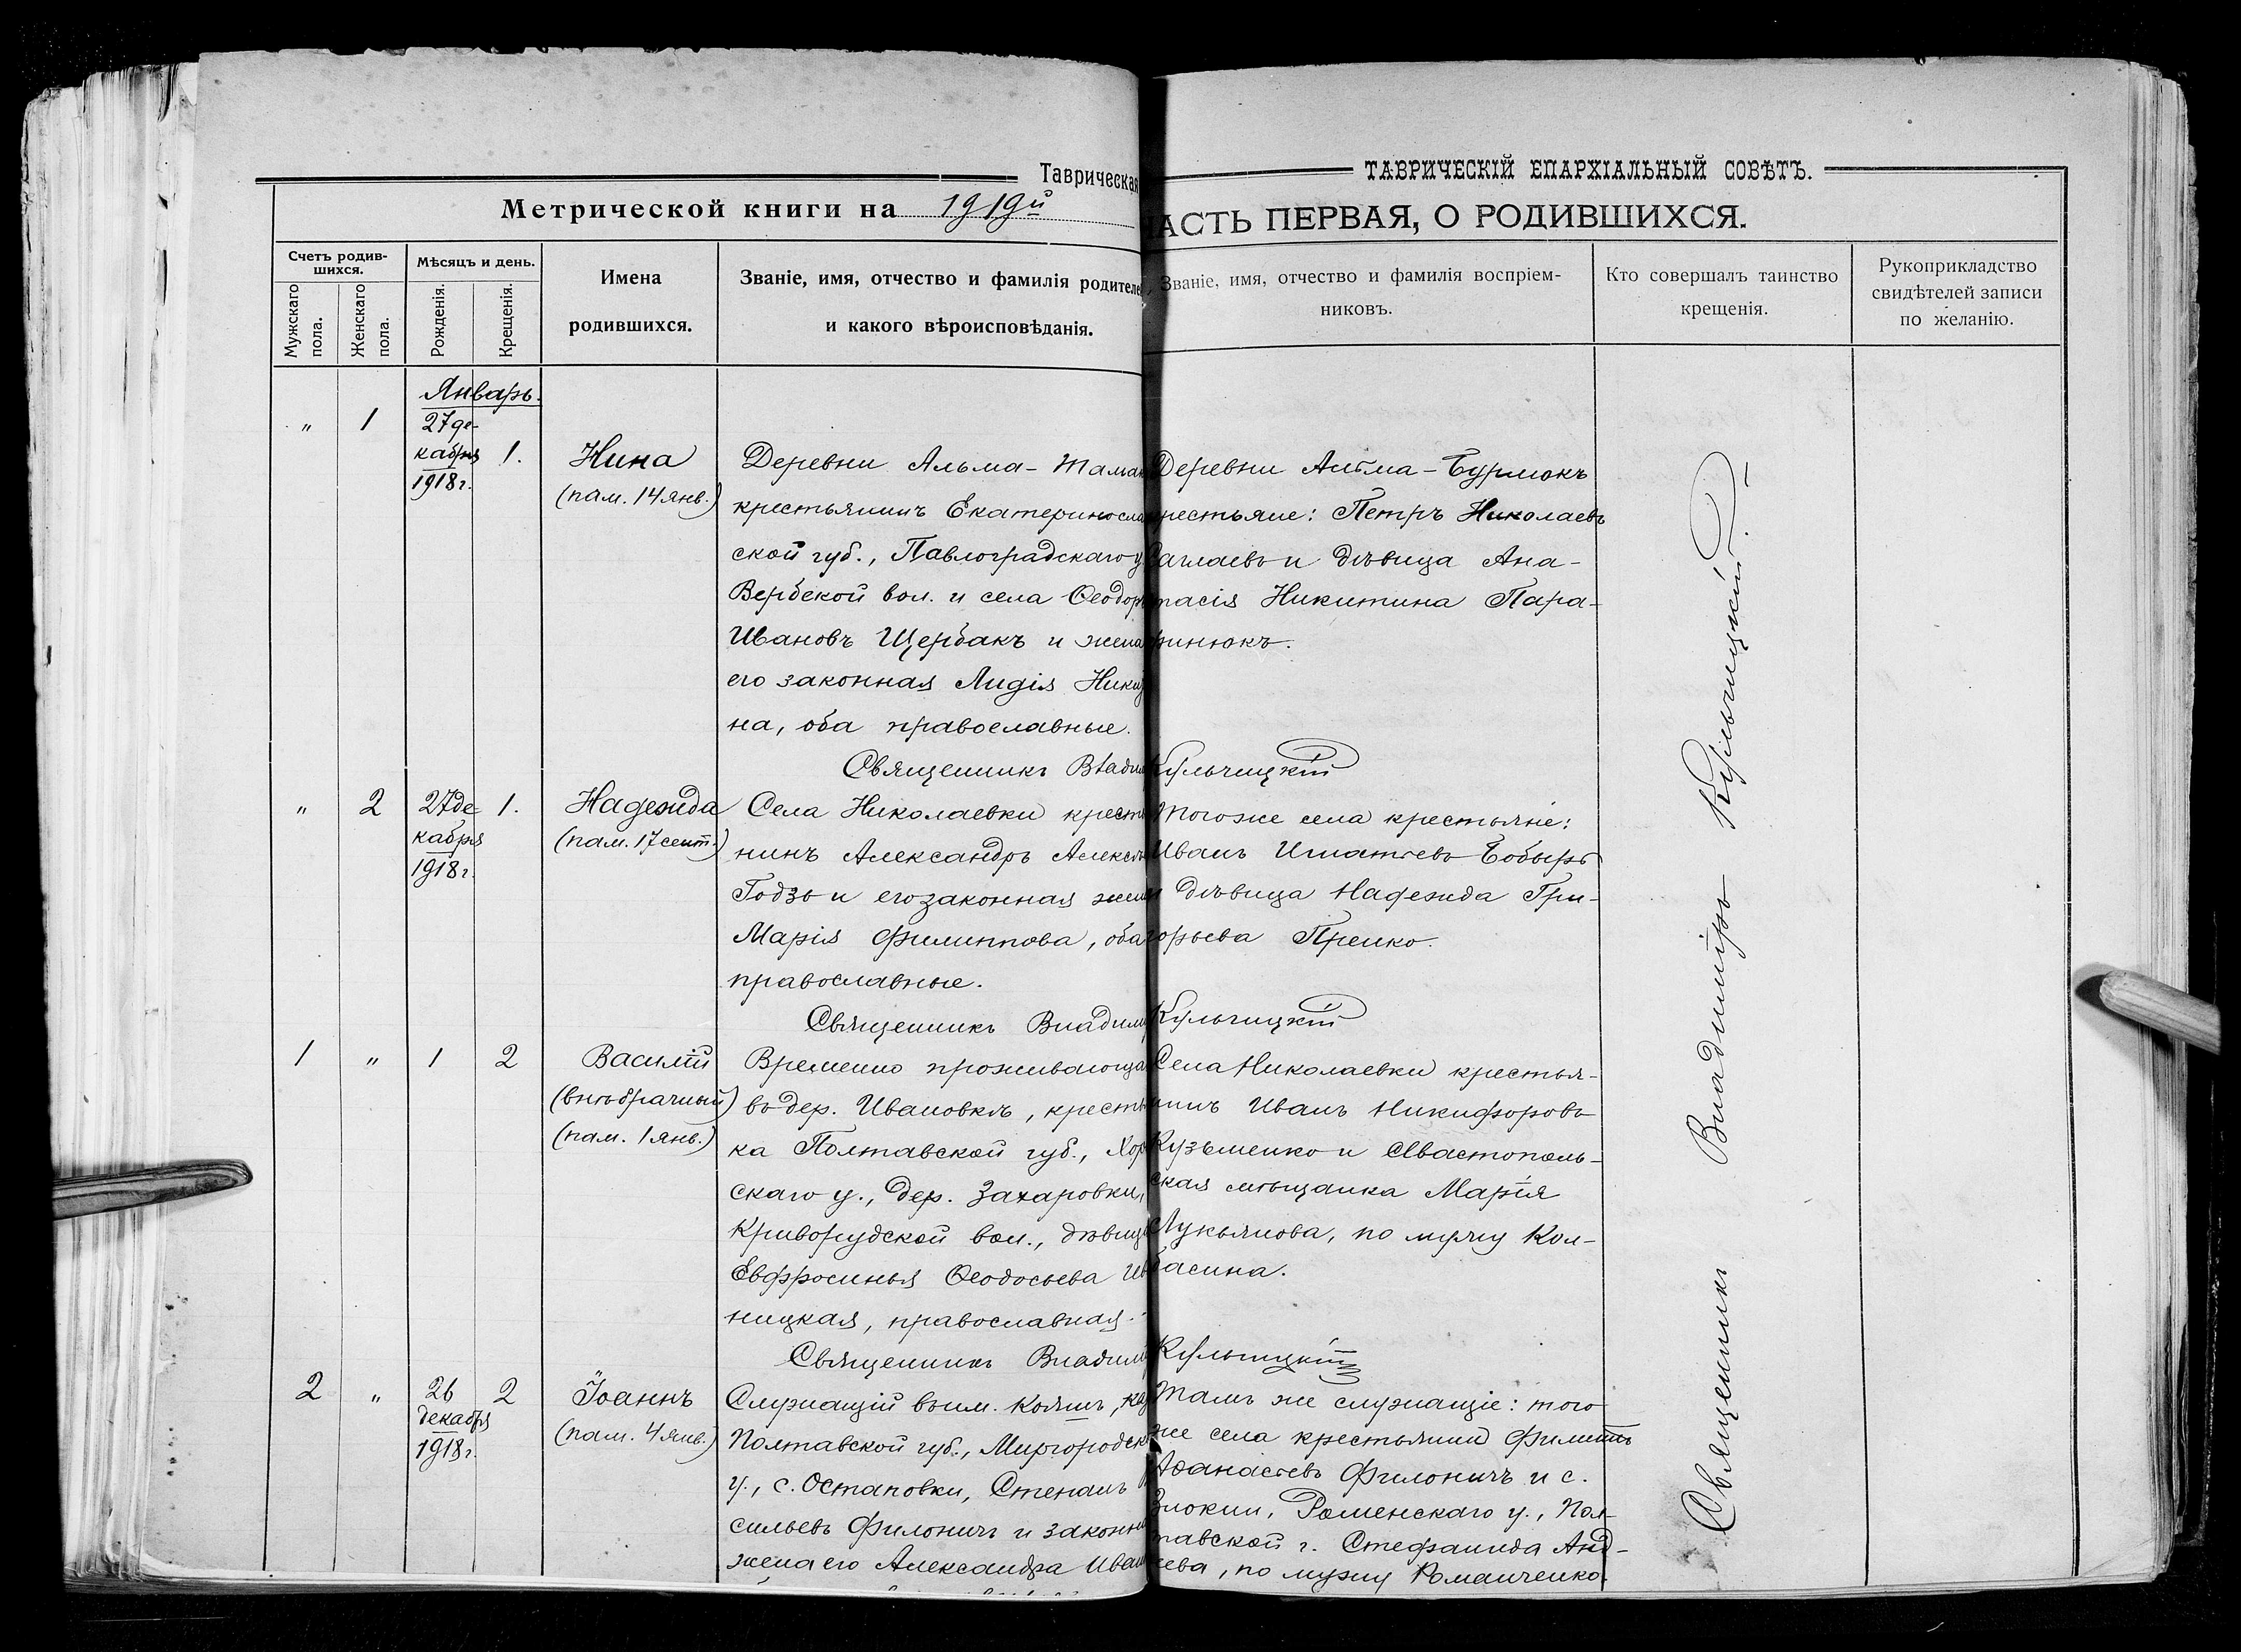 Таврическая
ТАВРИЧЕСКІЙ ЕПАРХІАЛЬНЫЙ СОВѢТЪ.
Метрической книги на 1919й
АСТЬ ПЕРВАЯ, О РОДИВШИХСЯ.
Счетъ родив-
шихся.
Мужскаго
пола.
Женскаго
пола.
Мѣсяцъ и день.
Рожденія.
Крещенія.
Имена
родившихся.
Званіе, имя, отчество и фамилія родителе
и какого вѣроисповѣданія.
Званіе, имя, отчество и фамилія воспріем-
никовъ.
Кто совершалъ таинство
крещенія.
Рукоприкладство
свидѣтелей записи
по желанію.
Январь.
" 1
27 де-
кабря
1918 г.
1.
Нина
(пам. 14 янв.)
Деревни Альма-Тамак
крестьянинъ Екатеринослав
ской губ., Павлоградскаго у
Вербской вол. и села Ѳеодоръ
Ивановъ Щербакъ и жена
его законная Лидія Ники
на, оба православные.
Деревни Альма-Бурлюкъ
крестьяне: Петръ Николаевъ
и дѣвица Ана-
тасія Никитина Пара-
финюкъ.
Священникъ Владим Кульчицкій
" 2
27 де-
кабря
1918 г.
1.
Надежда
(пам. 17 сент.)
Села Николаевки крестья
нинъ Александръ Алексѣ
Годзь и его законная жен
Марія Филиппова, оба
православные.
Того же села крестьяне:
Иванъ Игнатьевъ Бобырь
и дѣвица Надежда Гри-
горьева
Священникъ Владим Кульчицкій
1 " 1 2
Василій
(внѣбрачный)
(пам. 1 янв.)
Временно проживающа
въ дер. Ивановкѣ, крестьян
ка Полтавской губ., Хор
скаго у., дер. Захаровки,
Криворудской вол., дѣвиц
Евфросинья Ѳеодосьева Ив
ницкая, православная.
Села Николаевки крестья-
нинъ Иванъ Никифоровъ
Кузьменко и Севастополь-
ская мѣщанка Марія
Лукьянова, по мужу Кол-
басина.
Священникъ Владим Кульчицкій
2 "
26
декабря
1918 г.
2
Іоаннъ
(пам. 4 янв.)
Служащій въ им. Кояшъ,
Полтавской губ., Миргородск
у., с. Остаповки, Степанъ
сильевъ Филоничъ и законна
жена его Александра Иван
Тамъ же служащіе: того
же села крестьянинъ Филиппъ
Аѳанасьевъ Филоничъ и с.
Роменскаго у., Пол-
тавской г. Стефанида Анд-
реева, по мужу Романченко.
Священникъ Владиміръ Кульчицкій.